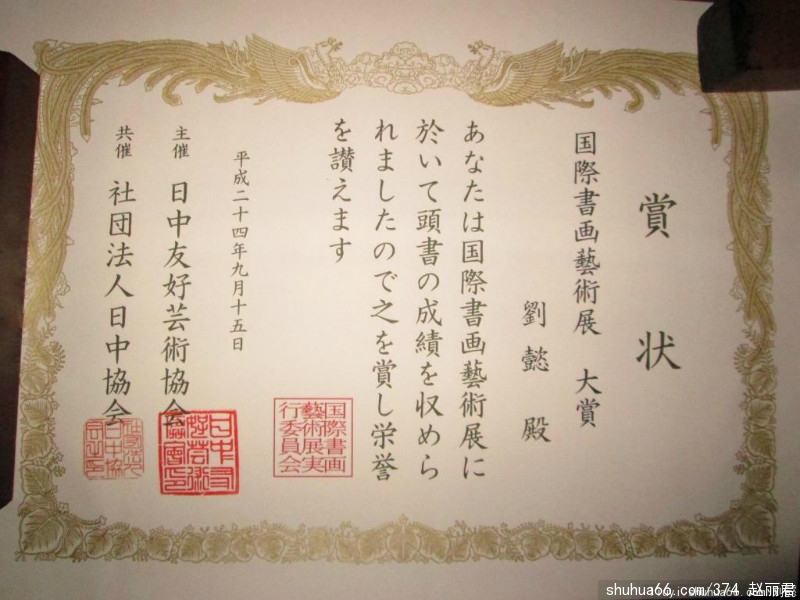 賞状
国際書画藝術展 大賞
劉懿 殿
あなたは国際書画藝術展に
於いて頭書の成績を収めら
れましたので之を賞し栄誉
を讃えます
平成二十四年九月十五日
主催 日中友好芸術協会
共催 社団法人日中協会
国際書画
藝術展実
行委員会
shuhua66.com/374 赵丽君